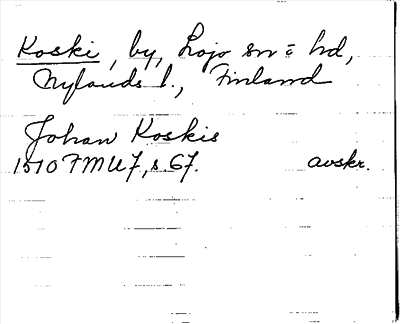 Koski, by, Lojo sn = hd,
Nylands l., Finland
Johan Koskis
1510 FMU 7, s. 67. avskr.